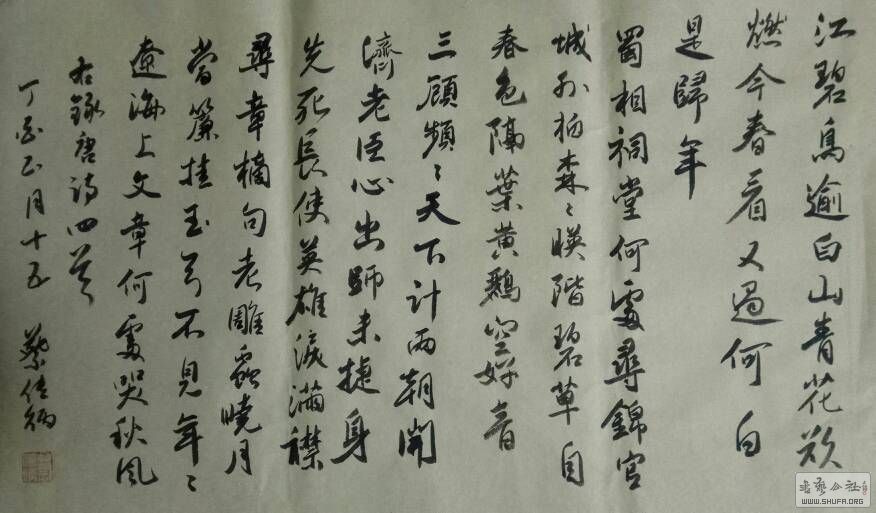 江碧鳥逾白山青花欲
燃今春看又過何日
是歸年
蜀相祠堂何處尋錦官
城外柏森々暎階碧草自
春色隔葉黃鸝空好音
三顧頻々天下計兩朝開
濟老臣心出師未捷身
先死長使英雄淚滿襟
尋章摘句老雕蟲曉月
當簾挂玉弓不見年々
遼海上文章何處哭秋風
右錄唐詩四首
丁酉正月十五 蔡
書藝公社
WWW.SHUFA.ORG